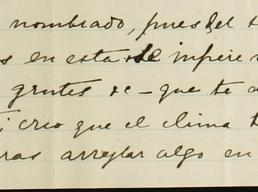 nombrado, pues del t
s en esta se infiere
gentes &c — que te a
; creo que el clima t
ras arreglar algo en